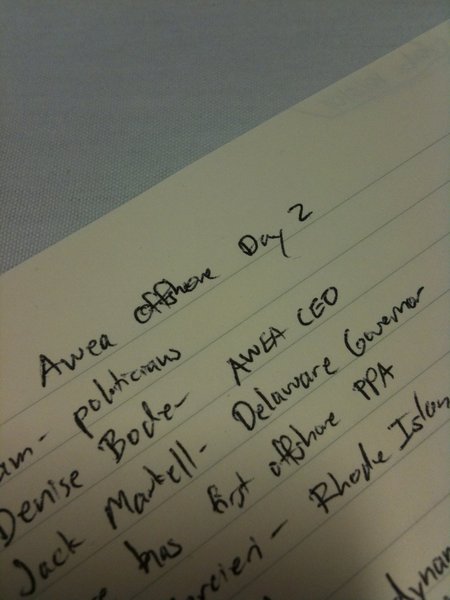 Awea offshore Day 2
am- politicians
Denise Bode- AWEA CEO
Jack Markell- Delaware Governor
has first offshore PPA
rcieri- Rhode Islan
dynam